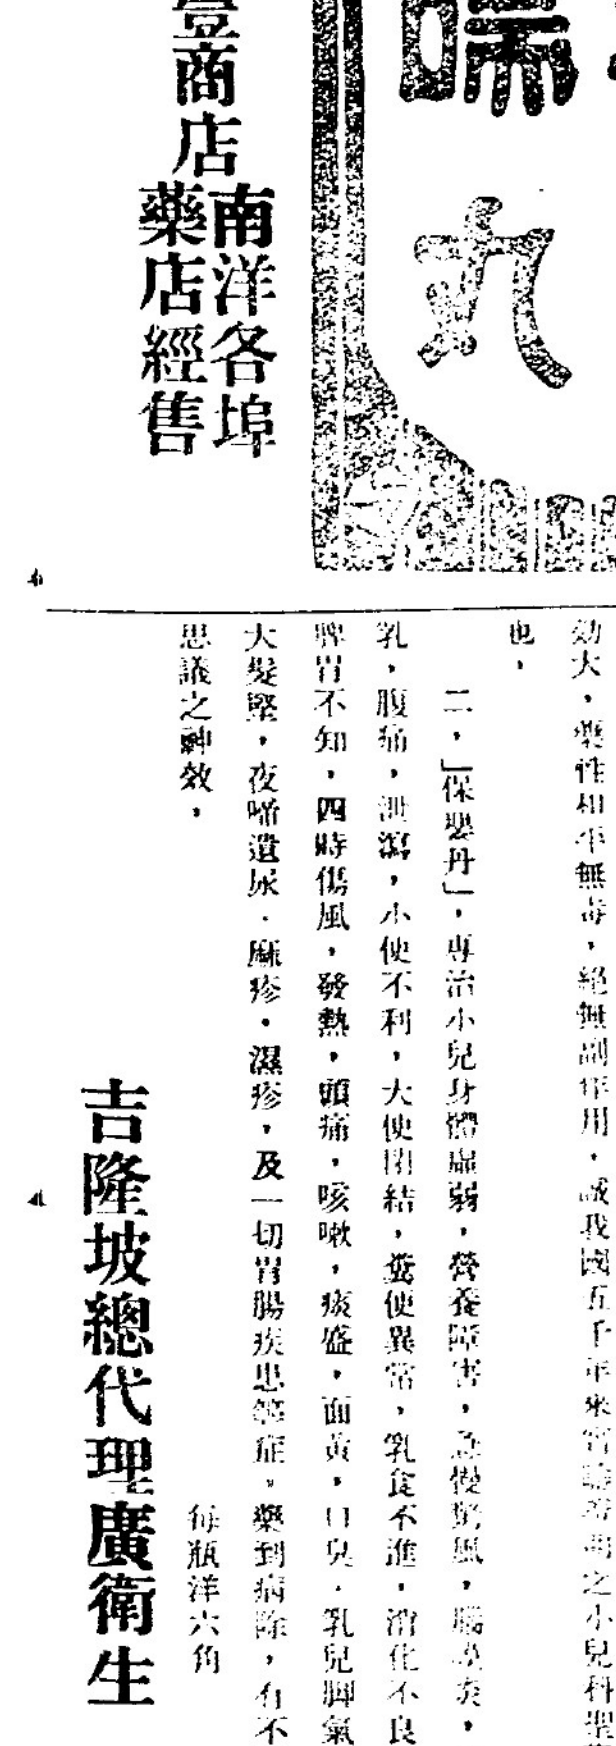 瑞
丸
豐商店
南洋各埠
藥店經售
効大，藥性和平無毒，絕無副作用，誠我國五千年來之小兒科聖
也，
二，「保嬰丹」，專治小兒身體虛弱，營養障害，急慢驚風，腦炎，
乳，腹痛，泄瀉，小便不利，大便閉結，糞便異常，乳食不進，消化不良
脾胃不知，四時傷風，發熱，頭痛，咳嗽，痰盛，面黃，口臭．乳兒脚氣
大髮堅，夜啼遺尿．麻疹．濕疹，及一切胃腸疾患等症，藥到病除，有不
思議之神效，
每瓶洋六角
吉隆坡總代理廣衛生